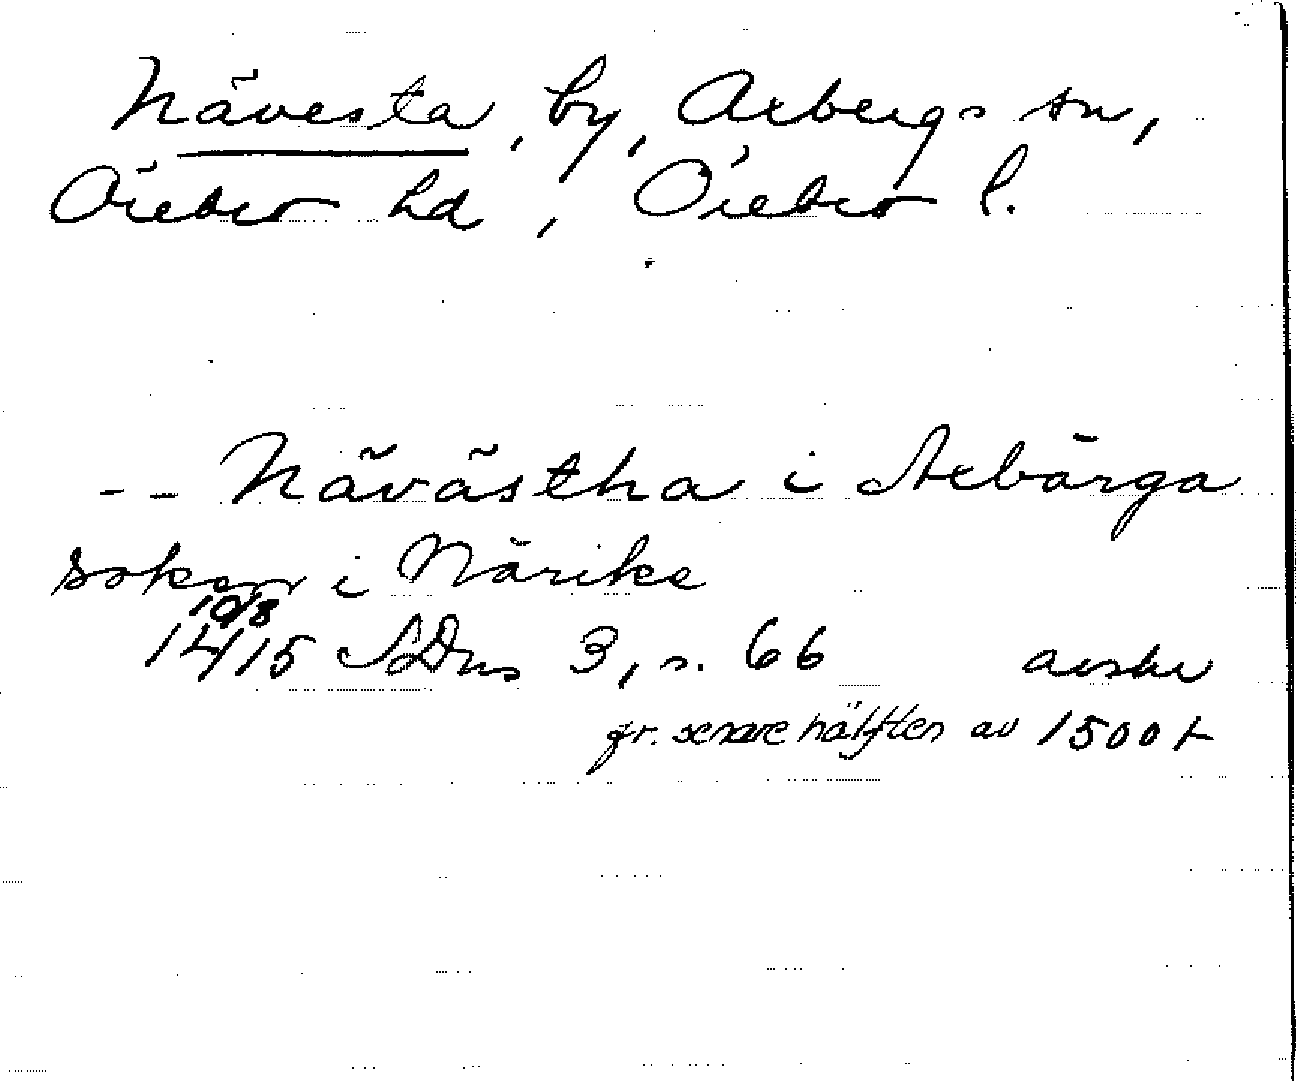 Nävesta, by, Axbergs sn,
Örebro hd, Örebro l.
-- Nävästha i Axbärga
soken i Närike
10/8
1415 SDns 3, s. 66 avskr
fr. senare hälften av 1500 t